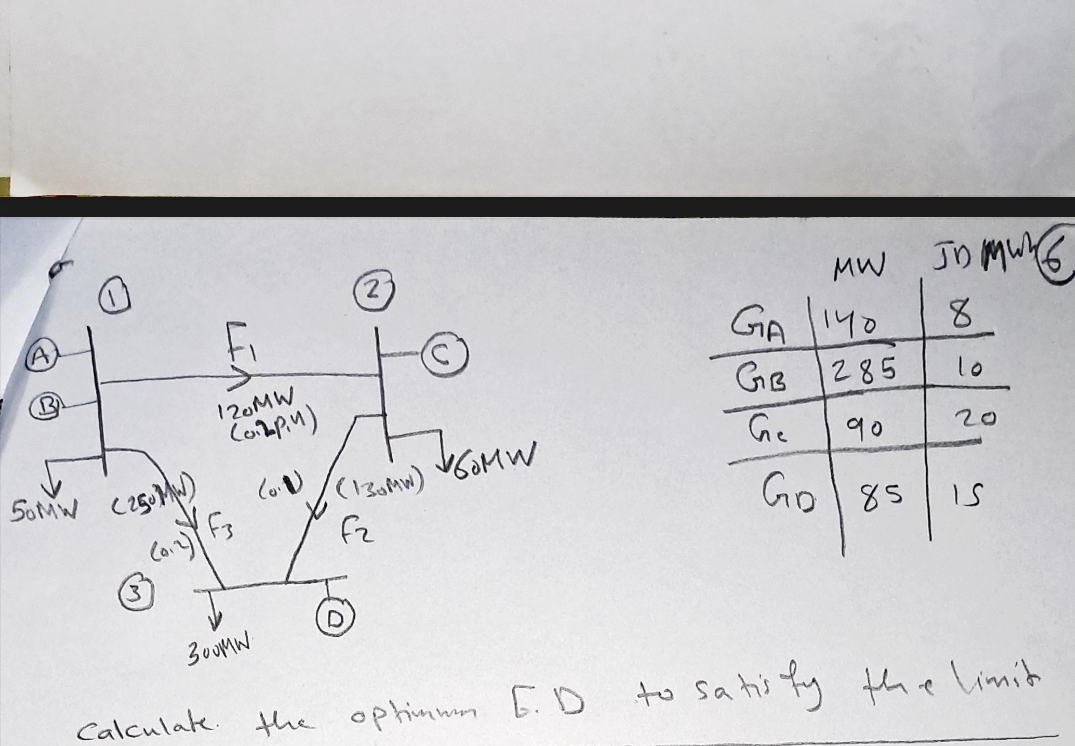 MW JD MWh 6
1 2
GA 140 8
A F1 C
GB 285 10
B 120MW
Gc 90 20
60MW
50MW (250MW) (0.1) (130MW)
GD 85 15
F3 F2
(0.2)
3
D
300MW
Calculate. the optimum E.D to satisfy the limit